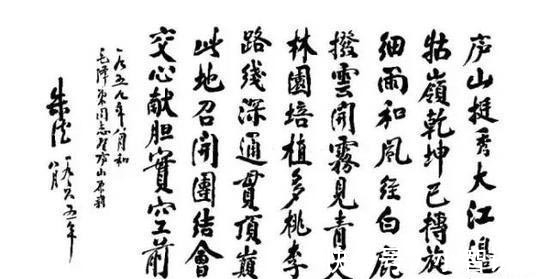 庐山挺秀大江邊
牯嶺乾坤已轉旋
细雨和風经白鹿
撥雲開霧見青天
林園培植多桃李
路线深通貫頂巔
此地召開團结會
交心献胆實空前
一九五九年八月和
毛泽东同志登庐山原韵
朱德 一九六五年
八月